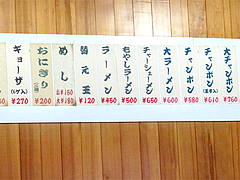 大チャンポン ¥760
チャンポン (玉子入) ¥610
チャンポン ¥580
大ラーメン ¥600
チャーシューメン ¥650
もやしラーメン ¥500
ラーメン ¥450
替え玉 ¥120
めし 小¥150 大¥180
おにぎり ¥200
ギョーザ (6ケ入) ¥270